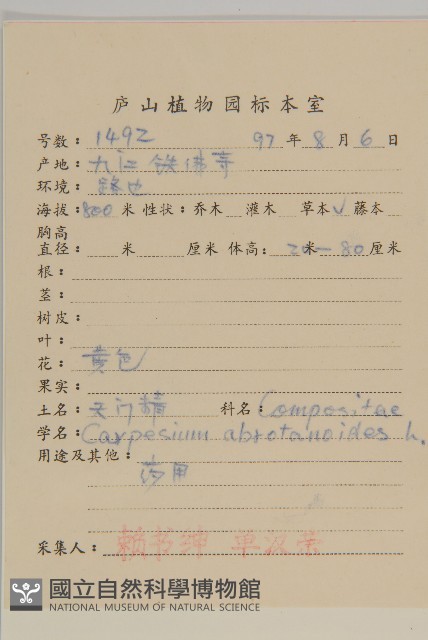 庐山植物园标本室
号数：1492 97年8月6日
产地：九江 铁佛寺
环境：路边
海拔：800米 性状：乔木 灌木 草本√ 藤本
胸高
直径： 米 厘米 体高： 米 80厘米
根：
茎：
树皮：
叶：
花：黄色
果实：
土名：天门精 科名：Compositae
学名：Carpesium abrotanoides L.
用途及其他：
药用
采集人：赖书绅 单汉荣
國立自然科學博物館
NATIONAL MUSEUM OF NATURAL SCIENCE